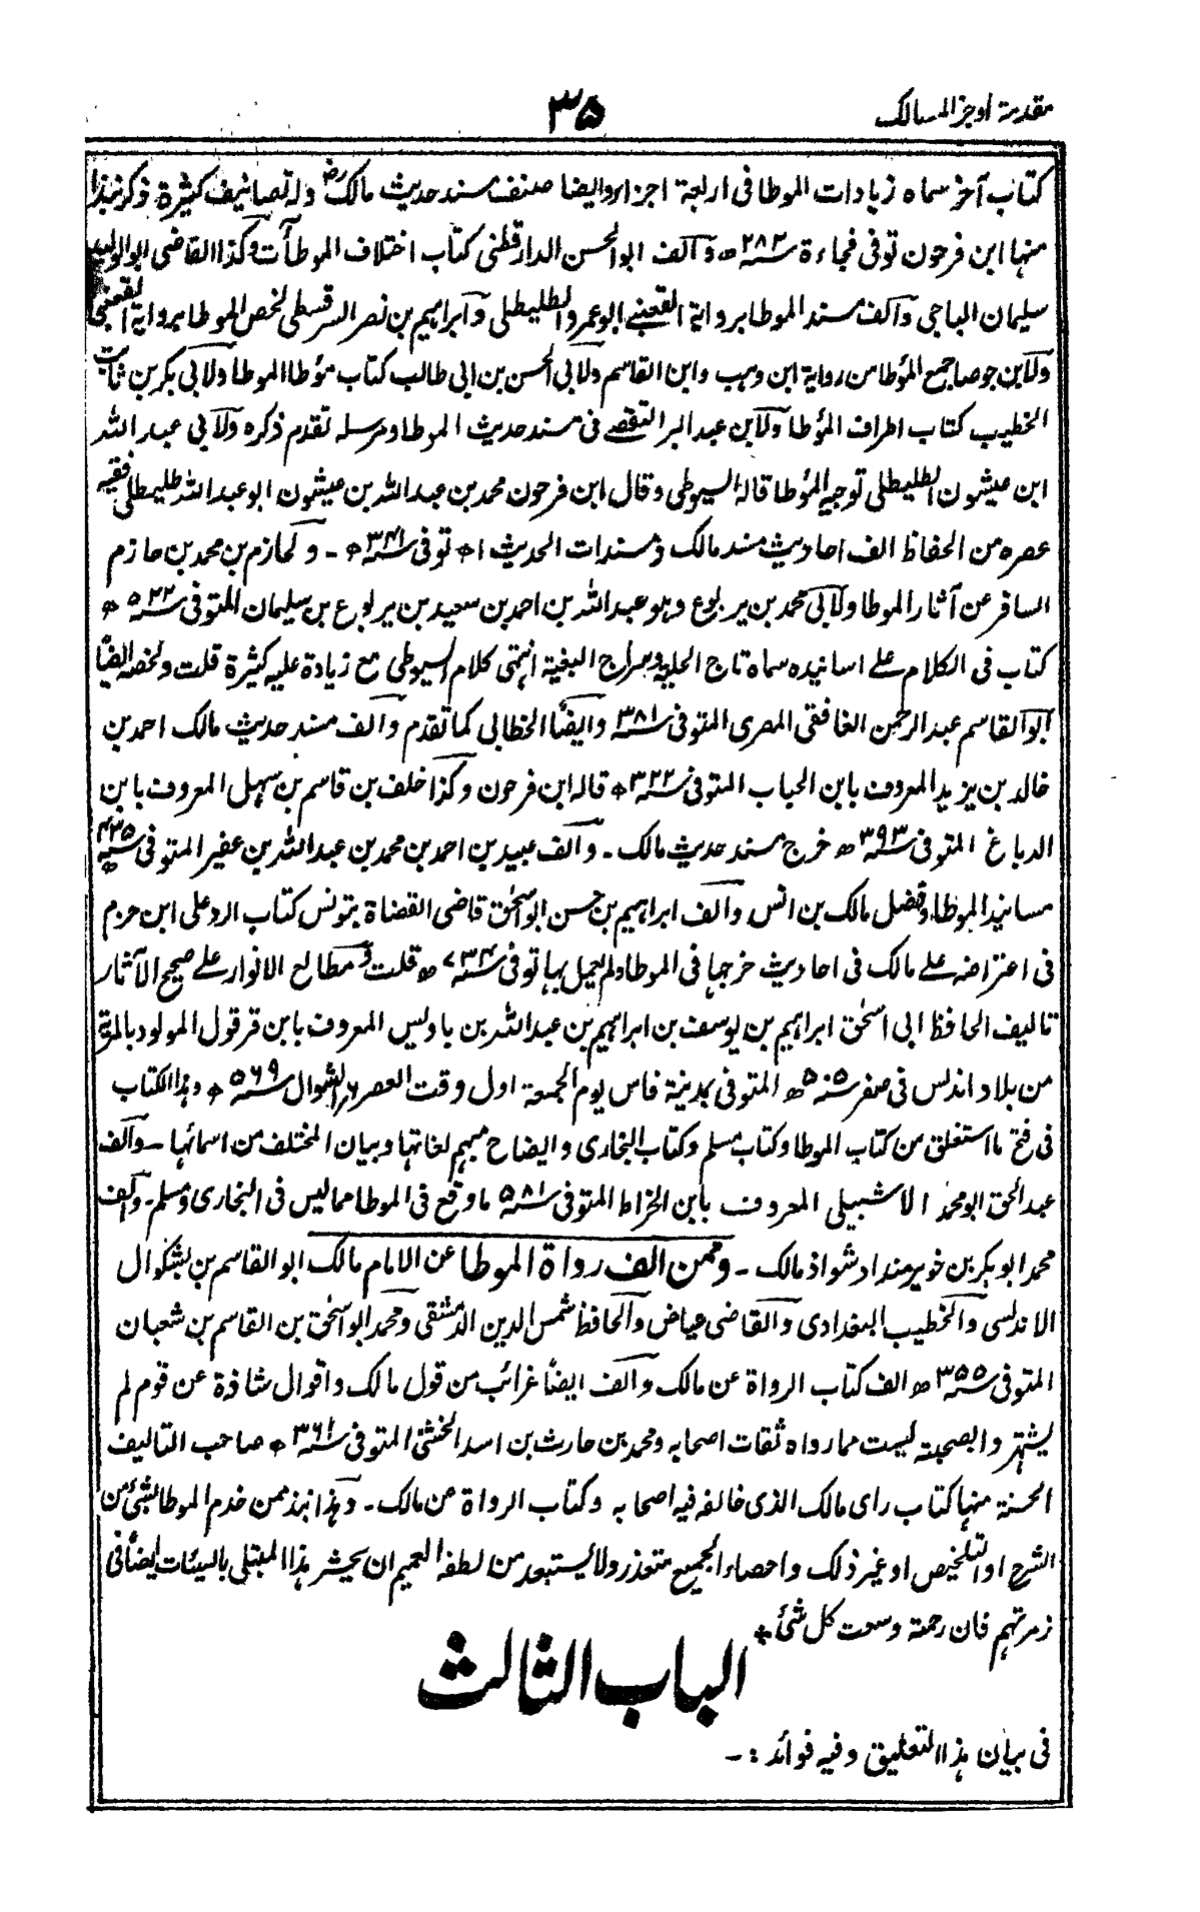 مقدمة اوجز المسالك
٣٥
كتاب آخر سماه زيادات الموطا فى اربعة اجزاء وايضا صنف مسند حديث مالكؓ وله تصانيف كثيرة ذكر نبذا
منها ابن فرحون توفى فجاءة سنة ٢٨٢ھ وآلف ابو الحسن الدارقطنى كتاب اختلاف الموطآت وكذا القاضى ابو الوليد
سليمان الباجى وآلف مسند الموطا برواية القعنبے ابو عمرو الطليطلى وآبراہيم بن نصر السرقسطى لخص الموطا برواية القعنبى
ولابن جوصا جمع المؤطا من رواية ابن وہب وابن القاسم ولابى الحسن بن ابى طالب كتاب مؤطا الموطا ولابى بكر بن ثابت
الخطيب كتاب اطراف المؤطا ولابن عبد البر التقصے فى مسند حديث الموطا ومرسله تقدم ذكره ولابى عبد الله
ابن عيشون الطليطلى توجيه المؤطا قاله السيوطى وقال ابن فرحون محمد بن عبد الله بن عيشون ابو عبد الله طليطلى فقيه
عصره من الحفاظ الف احاديث مسند مالك ومسندات الحديث اھ توفى سنة ٣٤١ھ ۔ ولحازم بن محمد بن حازم
السافر عن آثار الموطا ولابى محمد بن يربوع وہو عبد الله بن احمد بن سعيد بن يربوع بن سليمان المتوفى سنة ٥٢٢ھ
كتاب فى الكلام علے اسانيده سماه تاج الحلية وسراج البغية انتهى كلام السيوطى مع زيادة عليه كثيرة قلت ولخصه ايضًا
ابو القاسم عبد الرحمن الغافقى المصرى المتوفى سنة ٣٨١ وايضًا الخطابى كما تقدم وآلف مسند حديث مالك احمد بن
خالد بن يزيد المعروف بابن الحباب المتوفى سنة ٣٢٢ھ قاله ابن فرحون وكذا خلف بن قاسم بن سهل المعروف بابن
الدباغ المتوفى سنة ٣٩٣ھ خرج مسند حديث مالك ۔ وآلف عبيد بن احمد بن محمد بن عبد الله بن عفير المتوفى سنة ٤٣٥ھ
مسانيد الموطا وفضل مالك بن انس وآلف ابراہيم بن حسن ابو اسحٰق قاضى القضاة بتونس كتاب الرد على ابن حزم
فى اعتراضه علے مالك فى احاديث خرجها فى الموطا ولم يعمل بها توفى سنة ٧٣٤ھ قلت ومطالع الانوار علے صحيح الآثار
تاليف الحافظ ابى اسحٰق ابراہيم بن يوسف بن ابراہيم بن عبد الله بن باديس المعروف بابن قرقول المولود بالمرية
من بلاد اندلس فى صفر سنة ٥٠٥ھ المتوفى بمدينة فاس يوم الجمعة اول وقت العصر ٦ شوال سنة ٥٦٩ھ وہذا الكتاب
فى فتح ما استغلق من كتاب الموطا وكتاب مسلم وكتاب البخارى وايضاح مبهم لغاتها وبيان المختلف من اسمائها ۔ وآلف
عبد الحق ابو محمد الاشبيلى المعروف بابن الخراط المتوفى سنة ٥٨١ ما وقع فى الموطا مما ليس فى البخارى ومسلم ۔ وآلف
محمد ابو بكر بن خويز منداد شواذ مالك ۔ وممن الف رواة الموطا عن الامام مالك ابو القاسم بن بشكوال
الاندلسى والخطيب البغدادى والقاضى عياض والحافظ شمس الدين الدمشقى ومحمد ابو اسحٰق بن القاسم بن شعبان
المتوفى سنة ٣٥٥ھ الف كتاب الرواة عن مالك وآلف ايضًا غرائب من قول مالك واقوال شاذة عن قوم لم
يشتهروا بصحبته ليست مما رواه ثقات اصحابه ومحمد بن حارث بن اسد الخشنى المتوفى سنة ٣٦١ھ صاحب التاليف
الحسنة منها كتاب راى مالك الذى خالفه فيه اصحابه وكتاب الرواة عن مالك ۔ وہذا نبذ ممن خدم الموطا بشئ من
الشرح او التلخيص او غير ذلك واحصاء الجميع متعذر ولا يستبعد من لطفه العميم ان يحشر ہذا المبتلى بالسيئات ايضًا فى
زمرتهم فان رحمته وسعت كل شئ +
الباب الثالث
فى بيان ہذا التعليق وفيه فوائد :۔